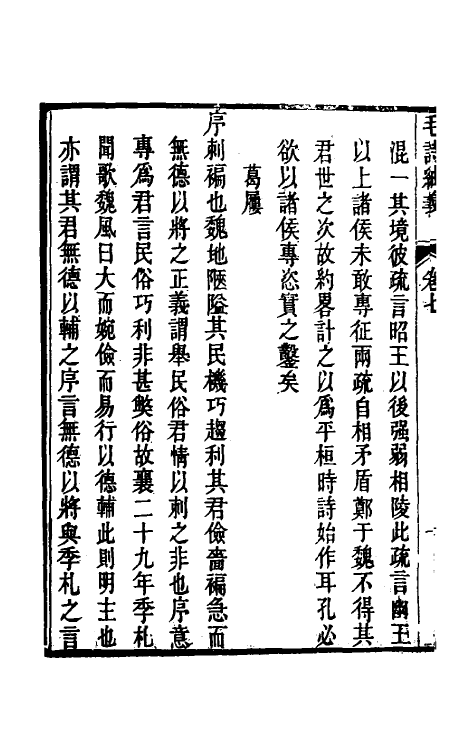 毛詩紬義 卷七
混一其境彼疏言昭王以後强弱相陵此疏言幽王
以上諸侯未敢專征兩疏自相矛盾鄭于魏不得其
君世之次故約畧計之以爲平桓時詩始作耳孔必
欲以諸侯專恣實之鑿矣
葛屨
序刺褊也魏地陿隘其民機巧趨利其君儉嗇褊急而
無德以將之正義謂舉民俗君情以刺之非也序意
專爲君言民俗巧利非甚獘俗故襄二十九年季札
聞歌魏風曰大而婉儉而易行以德輔此則明主也
亦謂其君無德以輔之序言無德以將與季札之言